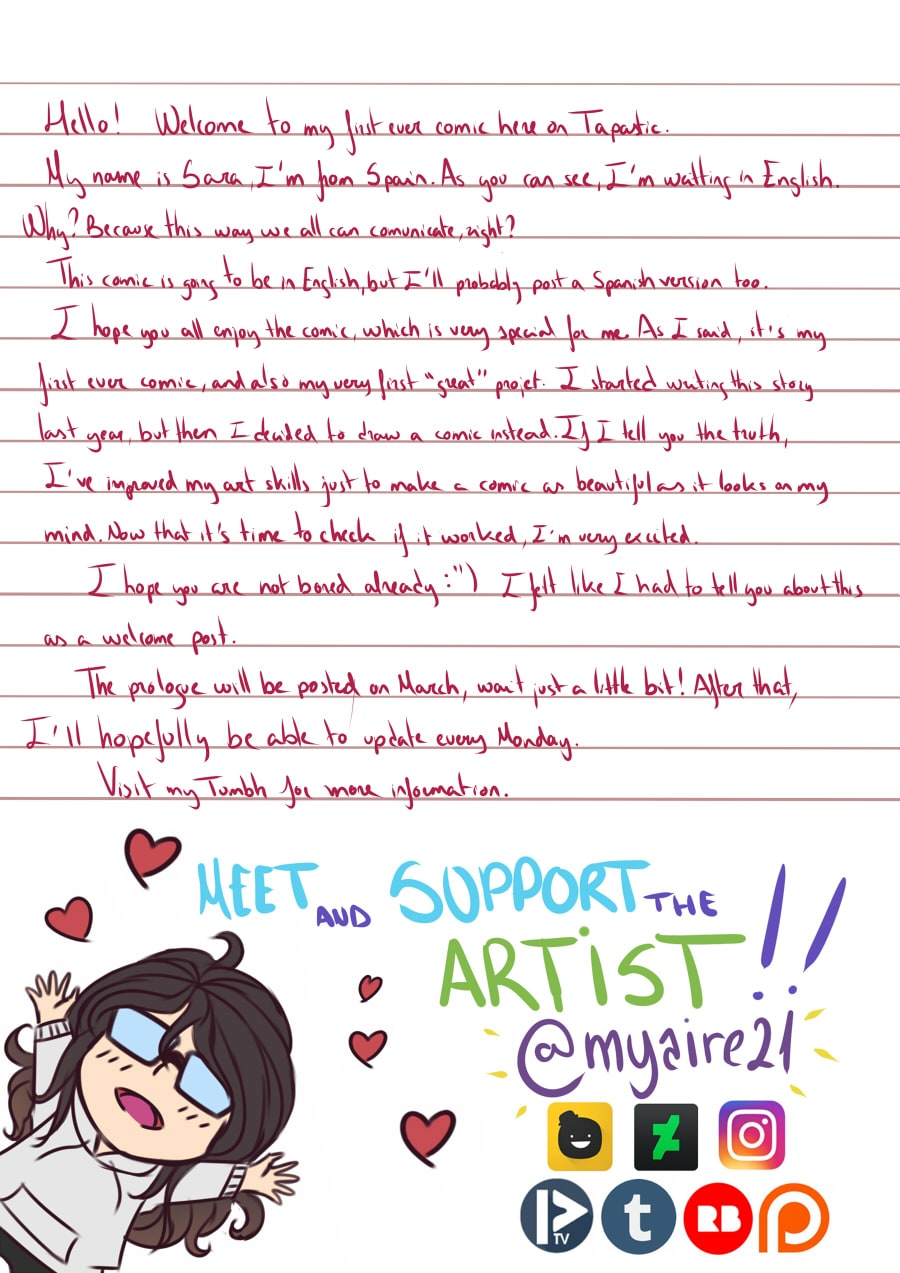 Hello! Welcome to my first ever comic here on Tapastic.
My name is Sara, I'm from Spain. As you can see, I'm waitting in English.
Why? Because this way we all can comunicate, right?
This comic is going to be in English, but I'll probably post a Spanish version too.
I hope you all enjoy the comic, which is very special for me. As I said, it's my
first ever comic, and also my very first "great" projet. I started writing this story
last year, but then I decided to draw a comic instead. If I tell you the truth,
I've improved my art skills just to make a comic as beautiful as it looks on my
mind. Now that it's time to check if it worked, I'm very excited.
I hope you are not bored already :'') I felt like I had to tell you about this
as a welcome post.
The prologue will be posted on March, wait just a little bit! After that,
I'll hopefully be able to update every Monday.
Visit my Tumblr for more information.
MEET AND SUPPORT THE
ARTIST!!
@myaire21
TV
t
RB